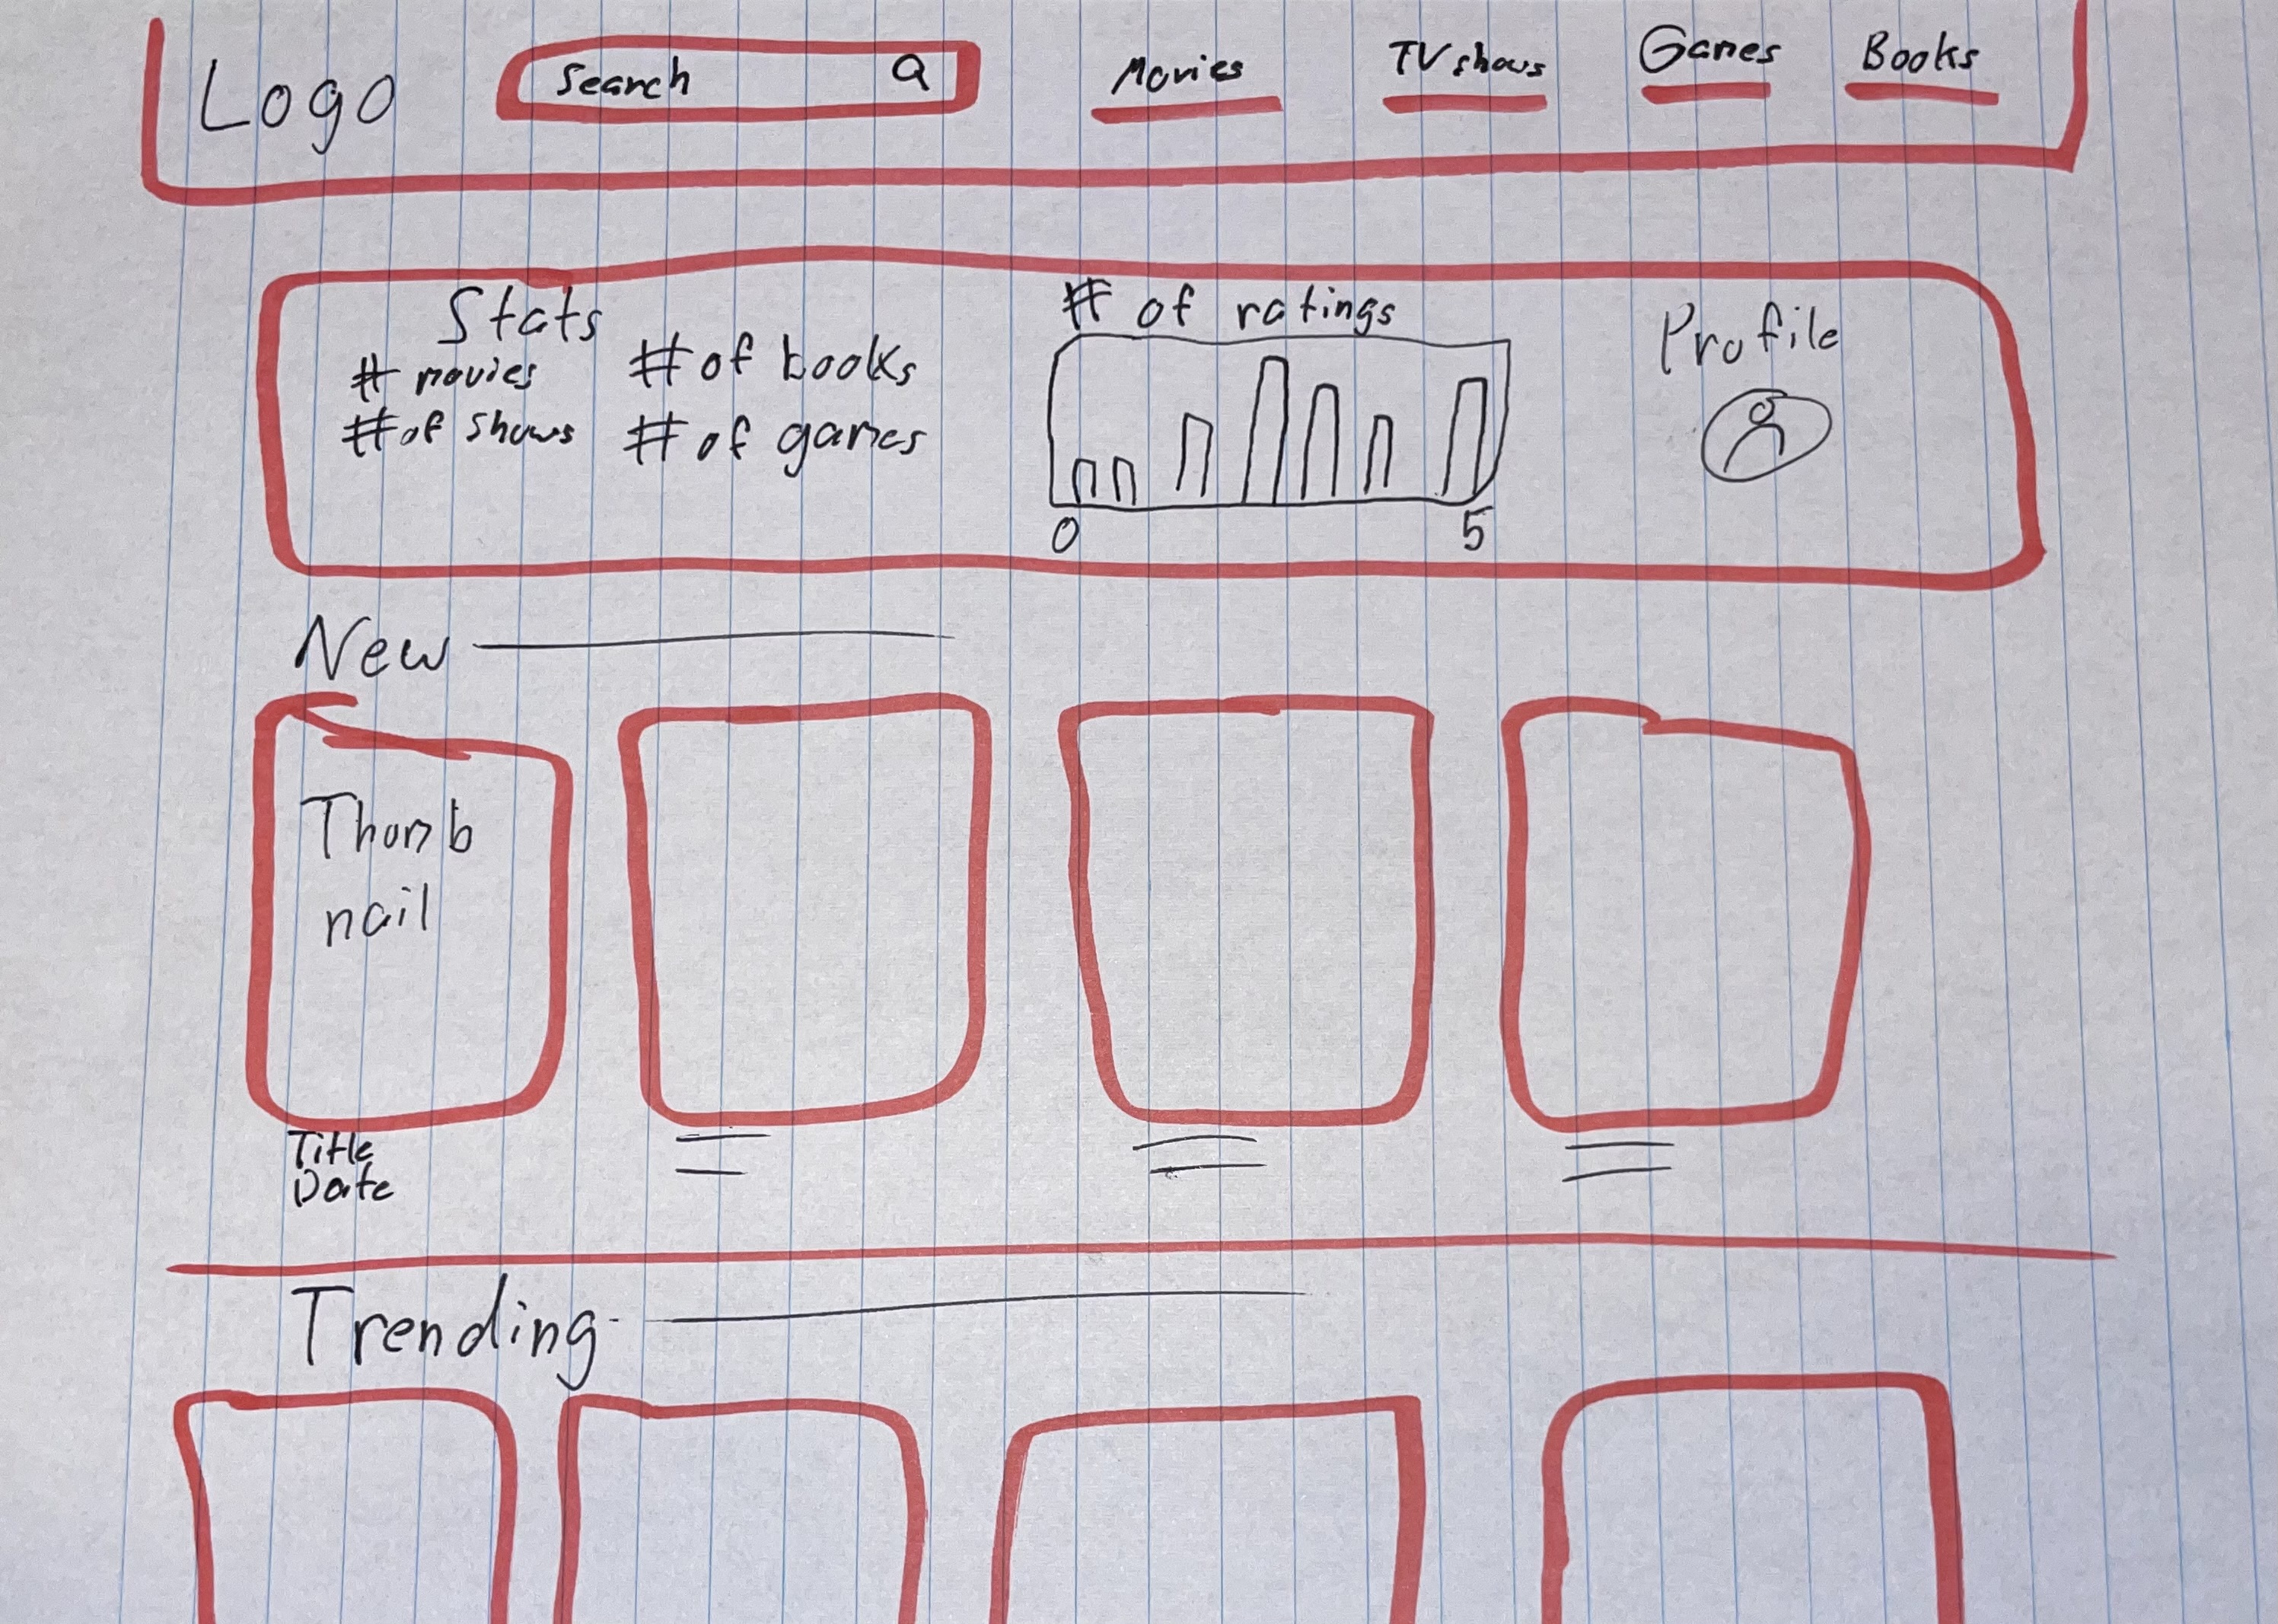 Logo
Search
Movies
TV shows
Games
Books
Stats
# movies
# of shows
# of books
# of games
# of ratings
0
5
Profile
New
Thumb
nail
Title
Date
Trending